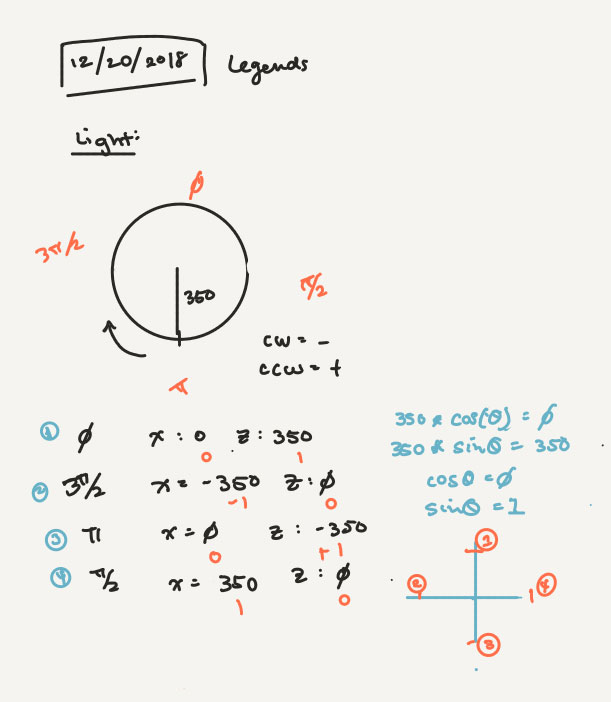 12/20/2018 Legends
Light:
ϕ
3π/2
π/2
350
cw = -
ccw = +
π
① ϕ x : 0 z : 350
0 1
② 3π/2 x = -350 z : ϕ
-1 0
③ π x = ϕ z : -350
0 +1
④ π/2 x = 350 z : ϕ
1 0
350 * cos(θ) = ϕ
350 * sinθ = 350
cosθ = ϕ
sinθ = 1
①
② ④
③